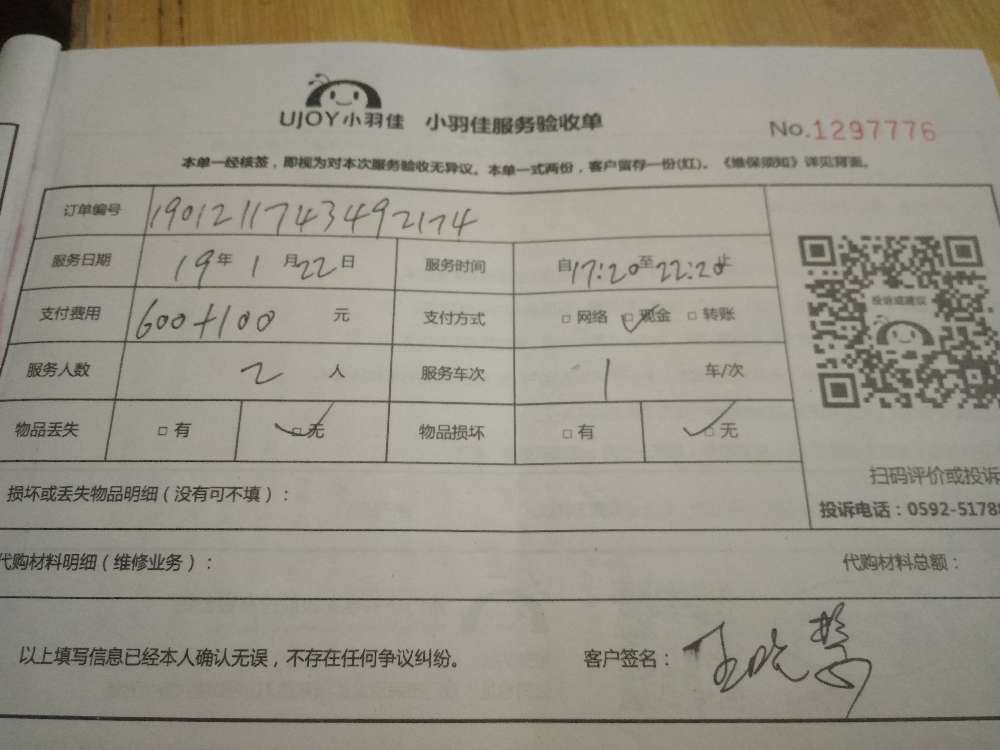 UJOY小羽佳 小羽佳服务验收单
No.1297776
本单一经核签，即视为对本次服务验收无异议。本单一式两份，客户留存一份(红)。《维保须知》详见背面。
订单编号 1901211743492174
服务日期 19年1月22日 服务时间 自17:20至22:20止
支付费用 600+100 元 支付方式 □网络 □现金 □转账
服务人数 2 人 服务车次 1 车/次
物品丢失 □有 □无 物品损坏 □有 □无
投诉或建议
扫码评价或投诉
投诉电话：0592-5178
损坏或丢失物品明细（没有可不填）：
代购材料明细（维修业务）： 代购材料总额：
以上填写信息已经本人确认无误，不存在任何争议纠纷。 客户签名：王晓慧